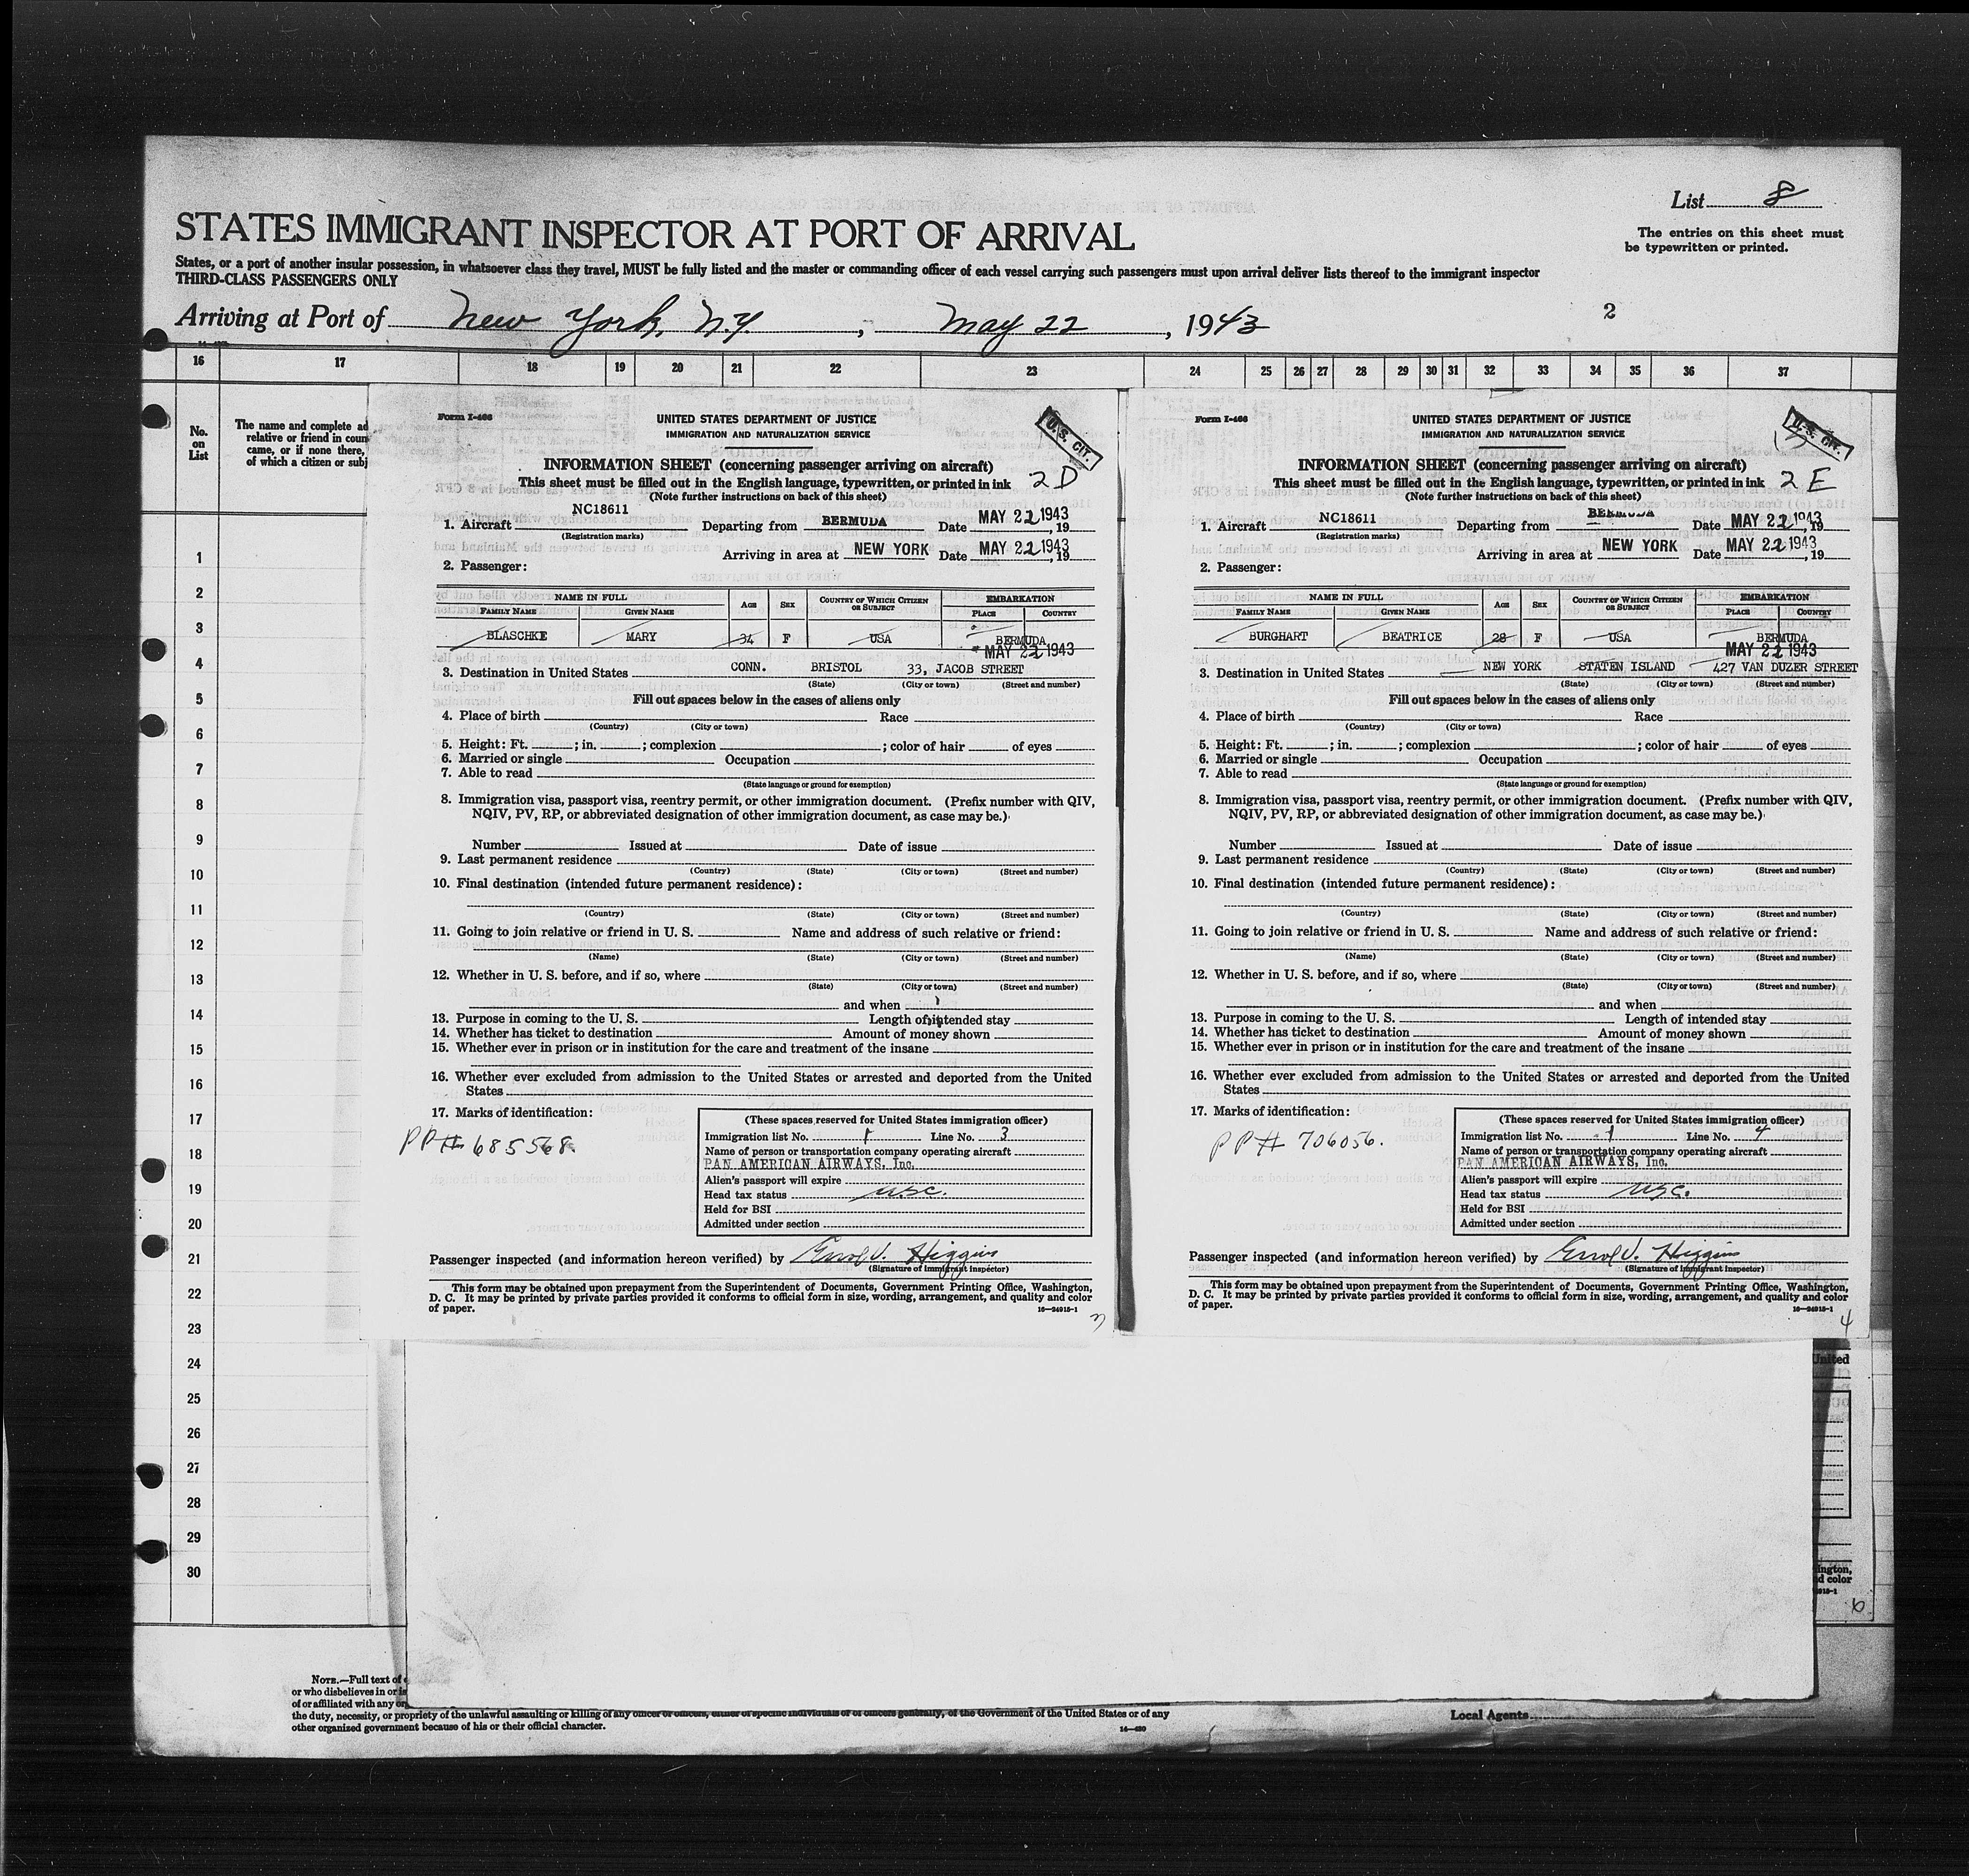 List 8
STATES IMMIGRANT INSPECTOR AT PORT OF ARRIVAL
The entries on this sheet must
be typewritten or printed.
States, or a port of another insular possession, in whatsoever class they travel, MUST be fully listed and the master or commanding officer of each vessel carrying such passengers must upon arrival deliver lists thereof to the immigrant inspector
THIRD-CLASS PASSENGERS ONLY
Arriving at Port of New York, N.Y. , May 22 , 1943
2
16 17 18 19 20 21 22 23 24 25 26 27 28 29 30 31 32 33 34 35 36 37
No.
on
List
The name and complete ad
relative or friend in coun
came, or if none there,
of which a citizen or subj
1
2
3
4
5
6
7
8
9
10
11
12
13
14
15
16
17
18
19
20
21
22
23
24
25
26
27
28
29
30
Form I-466
UNITED STATES DEPARTMENT OF JUSTICE
IMMIGRATION AND NATURALIZATION SERVICE
U.S. CIT.
INFORMATION SHEET (concerning passenger arriving on aircraft)
This sheet must be filled out in the English language, typewritten, or printed in ink
2D
(Note further instructions on back of this sheet)
1. Aircraft NC18611 Departing from BERMUDA Date MAY 22 1943, 19
(Registration marks)
Arriving in area at NEW YORK Date MAY 22 1943, 19
2. Passenger:
NAME IN FULL AGE SEX COUNTRY OF WHICH CITIZEN OR SUBJECT EMBARKATION
FAMILY NAME GIVEN NAME PLACE COUNTRY
BLASCHKE MARY 34 F USA BERMUDA
MAY 22 1943
3. Destination in United States CONN. BRISTOL 33, JACOB STREET
(State) (City or town) (Street and number)
Fill out spaces below in the cases of aliens only
4. Place of birth Race
(Country) (City or town)
5. Height: Ft. ; in. ; complexion ; color of hair of eyes
6. Married or single Occupation
7. Able to read
(State language or ground for exemption)
8. Immigration visa, passport visa, reentry permit, or other immigration document. (Prefix number with QIV,
NQIV, PV, RP, or abbreviated designation of other immigration document, as case may be.)
Number Issued at Date of issue
9. Last permanent residence
(Country) (State) (City or town) (Street and number)
10. Final destination (intended future permanent residence):
(Country) (State) (City or town) (Street and number)
11. Going to join relative or friend in U. S. Name and address of such relative or friend:
(Name) (State) (City or town) (Street and number)
12. Whether in U. S. before, and if so, where
(State) (City or town) (Street and number)
and when
13. Purpose in coming to the U. S. Length of intended stay
14. Whether has ticket to destination Amount of money shown
15. Whether ever in prison or in institution for the care and treatment of the insane
16. Whether ever excluded from admission to the United States or arrested and deported from the United
States
17. Marks of identification:
PP# 685568
(These spaces reserved for United States immigration officer)
Immigration list No. 1 Line No. 3
Name of person or transportation company operating aircraft
PAN AMERICAN AIRWAYS, Inc.
Alien's passport will expire
Head tax status usc.
Held for BSI
Admitted under section
Passenger inspected (and information hereon verified) by Errol V. Higgins
(Signature of immigrant inspector)
This form may be obtained upon prepayment from the Superintendent of Documents, Government Printing Office, Washington,
D. C. It may be printed by private parties provided it conforms to official form in size, wording, arrangement, and quality and color
of paper.
16—24915-1
3
Form I-466
UNITED STATES DEPARTMENT OF JUSTICE
IMMIGRATION AND NATURALIZATION SERVICE
U.S. CIT.
INFORMATION SHEET (concerning passenger arriving on aircraft)
This sheet must be filled out in the English language, typewritten, or printed in ink
2E
(Note further instructions on back of this sheet)
1. Aircraft NC18611 Departing from BERMUDA Date MAY 22 1943, 19
(Registration marks)
Arriving in area at NEW YORK Date MAY 22 1943, 19
2. Passenger:
NAME IN FULL AGE SEX COUNTRY OF WHICH CITIZEN OR SUBJECT EMBARKATION
FAMILY NAME GIVEN NAME PLACE COUNTRY
BURGHART BEATRICE 28 F USA BERMUDA
MAY 22 1943
3. Destination in United States NEW YORK STATEN ISLAND 427 VAN DUZER STREET
(State) (City or town) (Street and number)
Fill out spaces below in the cases of aliens only
4. Place of birth Race
(Country) (City or town)
5. Height: Ft. ; in. ; complexion ; color of hair of eyes
6. Married or single Occupation
7. Able to read
(State language or ground for exemption)
8. Immigration visa, passport visa, reentry permit, or other immigration document. (Prefix number with QIV,
NQIV, PV, RP, or abbreviated designation of other immigration document, as case may be.)
Number Issued at Date of issue
9. Last permanent residence
(Country) (State) (City or town) (Street and number)
10. Final destination (intended future permanent residence):
(Country) (State) (City or town) (Street and number)
11. Going to join relative or friend in U. S. Name and address of such relative or friend:
(Name) (State) (City or town) (Street and number)
12. Whether in U. S. before, and if so, where
(State) (City or town) (Street and number)
and when
13. Purpose in coming to the U. S. Length of intended stay
14. Whether has ticket to destination Amount of money shown
15. Whether ever in prison or in institution for the care and treatment of the insane
16. Whether ever excluded from admission to the United States or arrested and deported from the United
States
17. Marks of identification:
PP# 706056.
(These spaces reserved for United States immigration officer)
Immigration list No. 1 Line No. 4
Name of person or transportation company operating aircraft
PAN AMERICAN AIRWAYS, Inc.
Alien's passport will expire
Head tax status usc.
Held for BSI
Admitted under section
Passenger inspected (and information hereon verified) by Errol V. Higgins
(Signature of immigrant inspector)
This form may be obtained upon prepayment from the Superintendent of Documents, Government Printing Office, Washington,
D. C. It may be printed by private parties provided it conforms to official form in size, wording, arrangement, and quality and color
of paper.
16—24915-1
4
United
ington,
d color
915-1
6
NOTE.—Full text of
or who disbelieves in or is
of or affiliated with any or
the duty, necessity, or propriety of the unlawful assaulting or killing of any officer or officers, either of specific individuals or of officers generally, of the Government of the United States or of any
other organized government because of his or their official character.
Local Agents